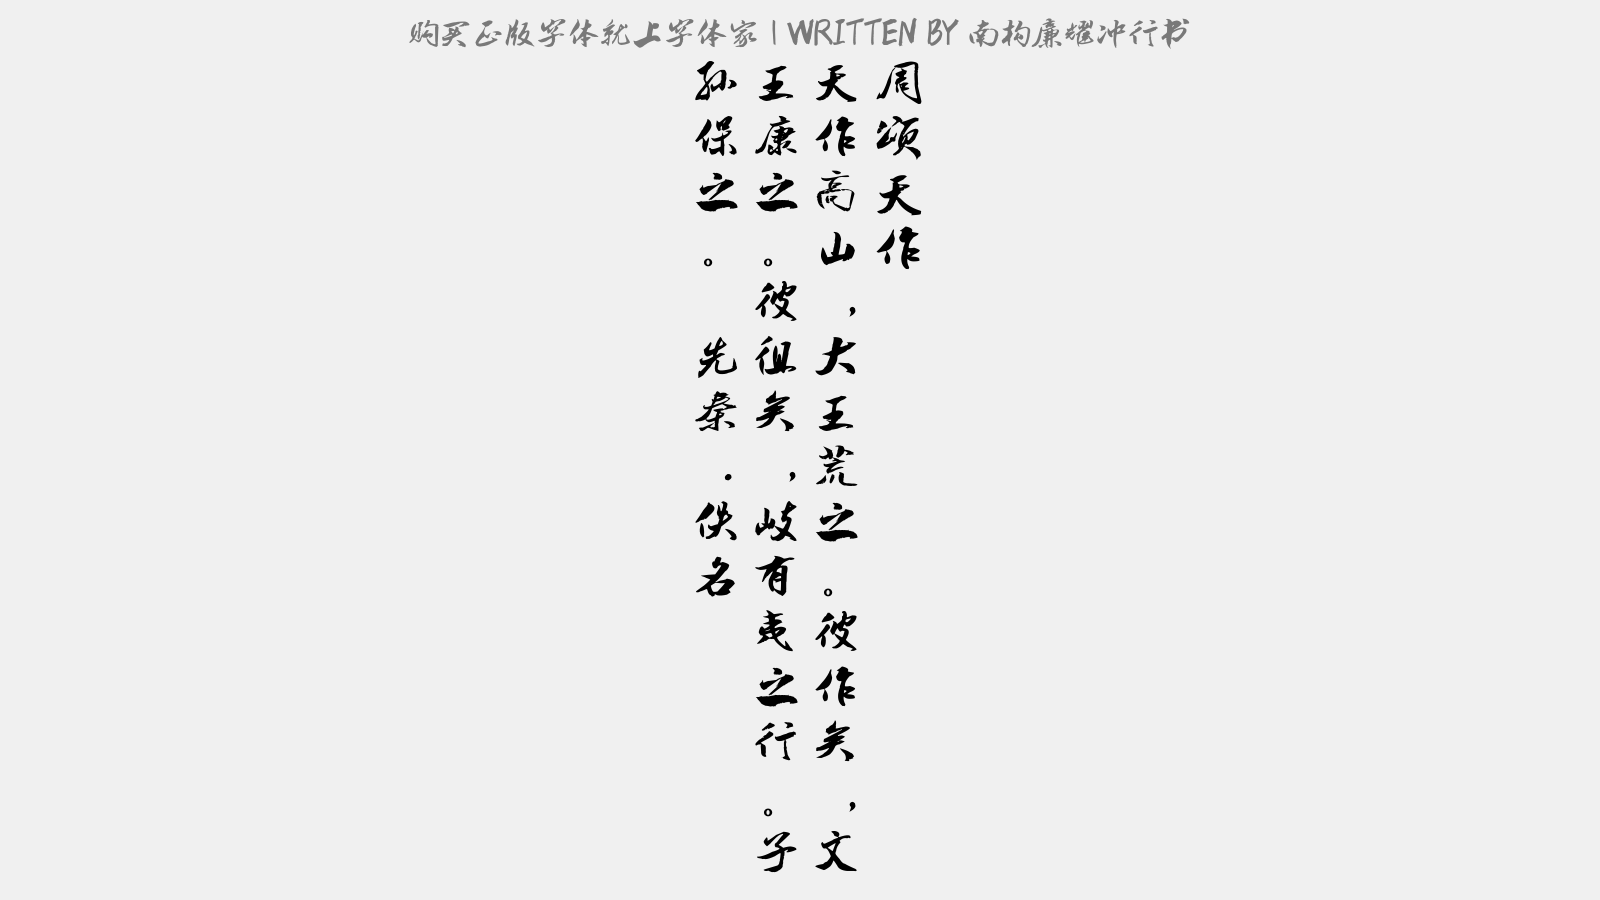 购买正版字体就上字体家 | WRITTEN BY 南构廉耀冲行书
周颂天作
天作高山，大王荒之。彼作矣，文
王康之。彼徂矣，岐有夷之行。子
孙保之。 先秦．佚名